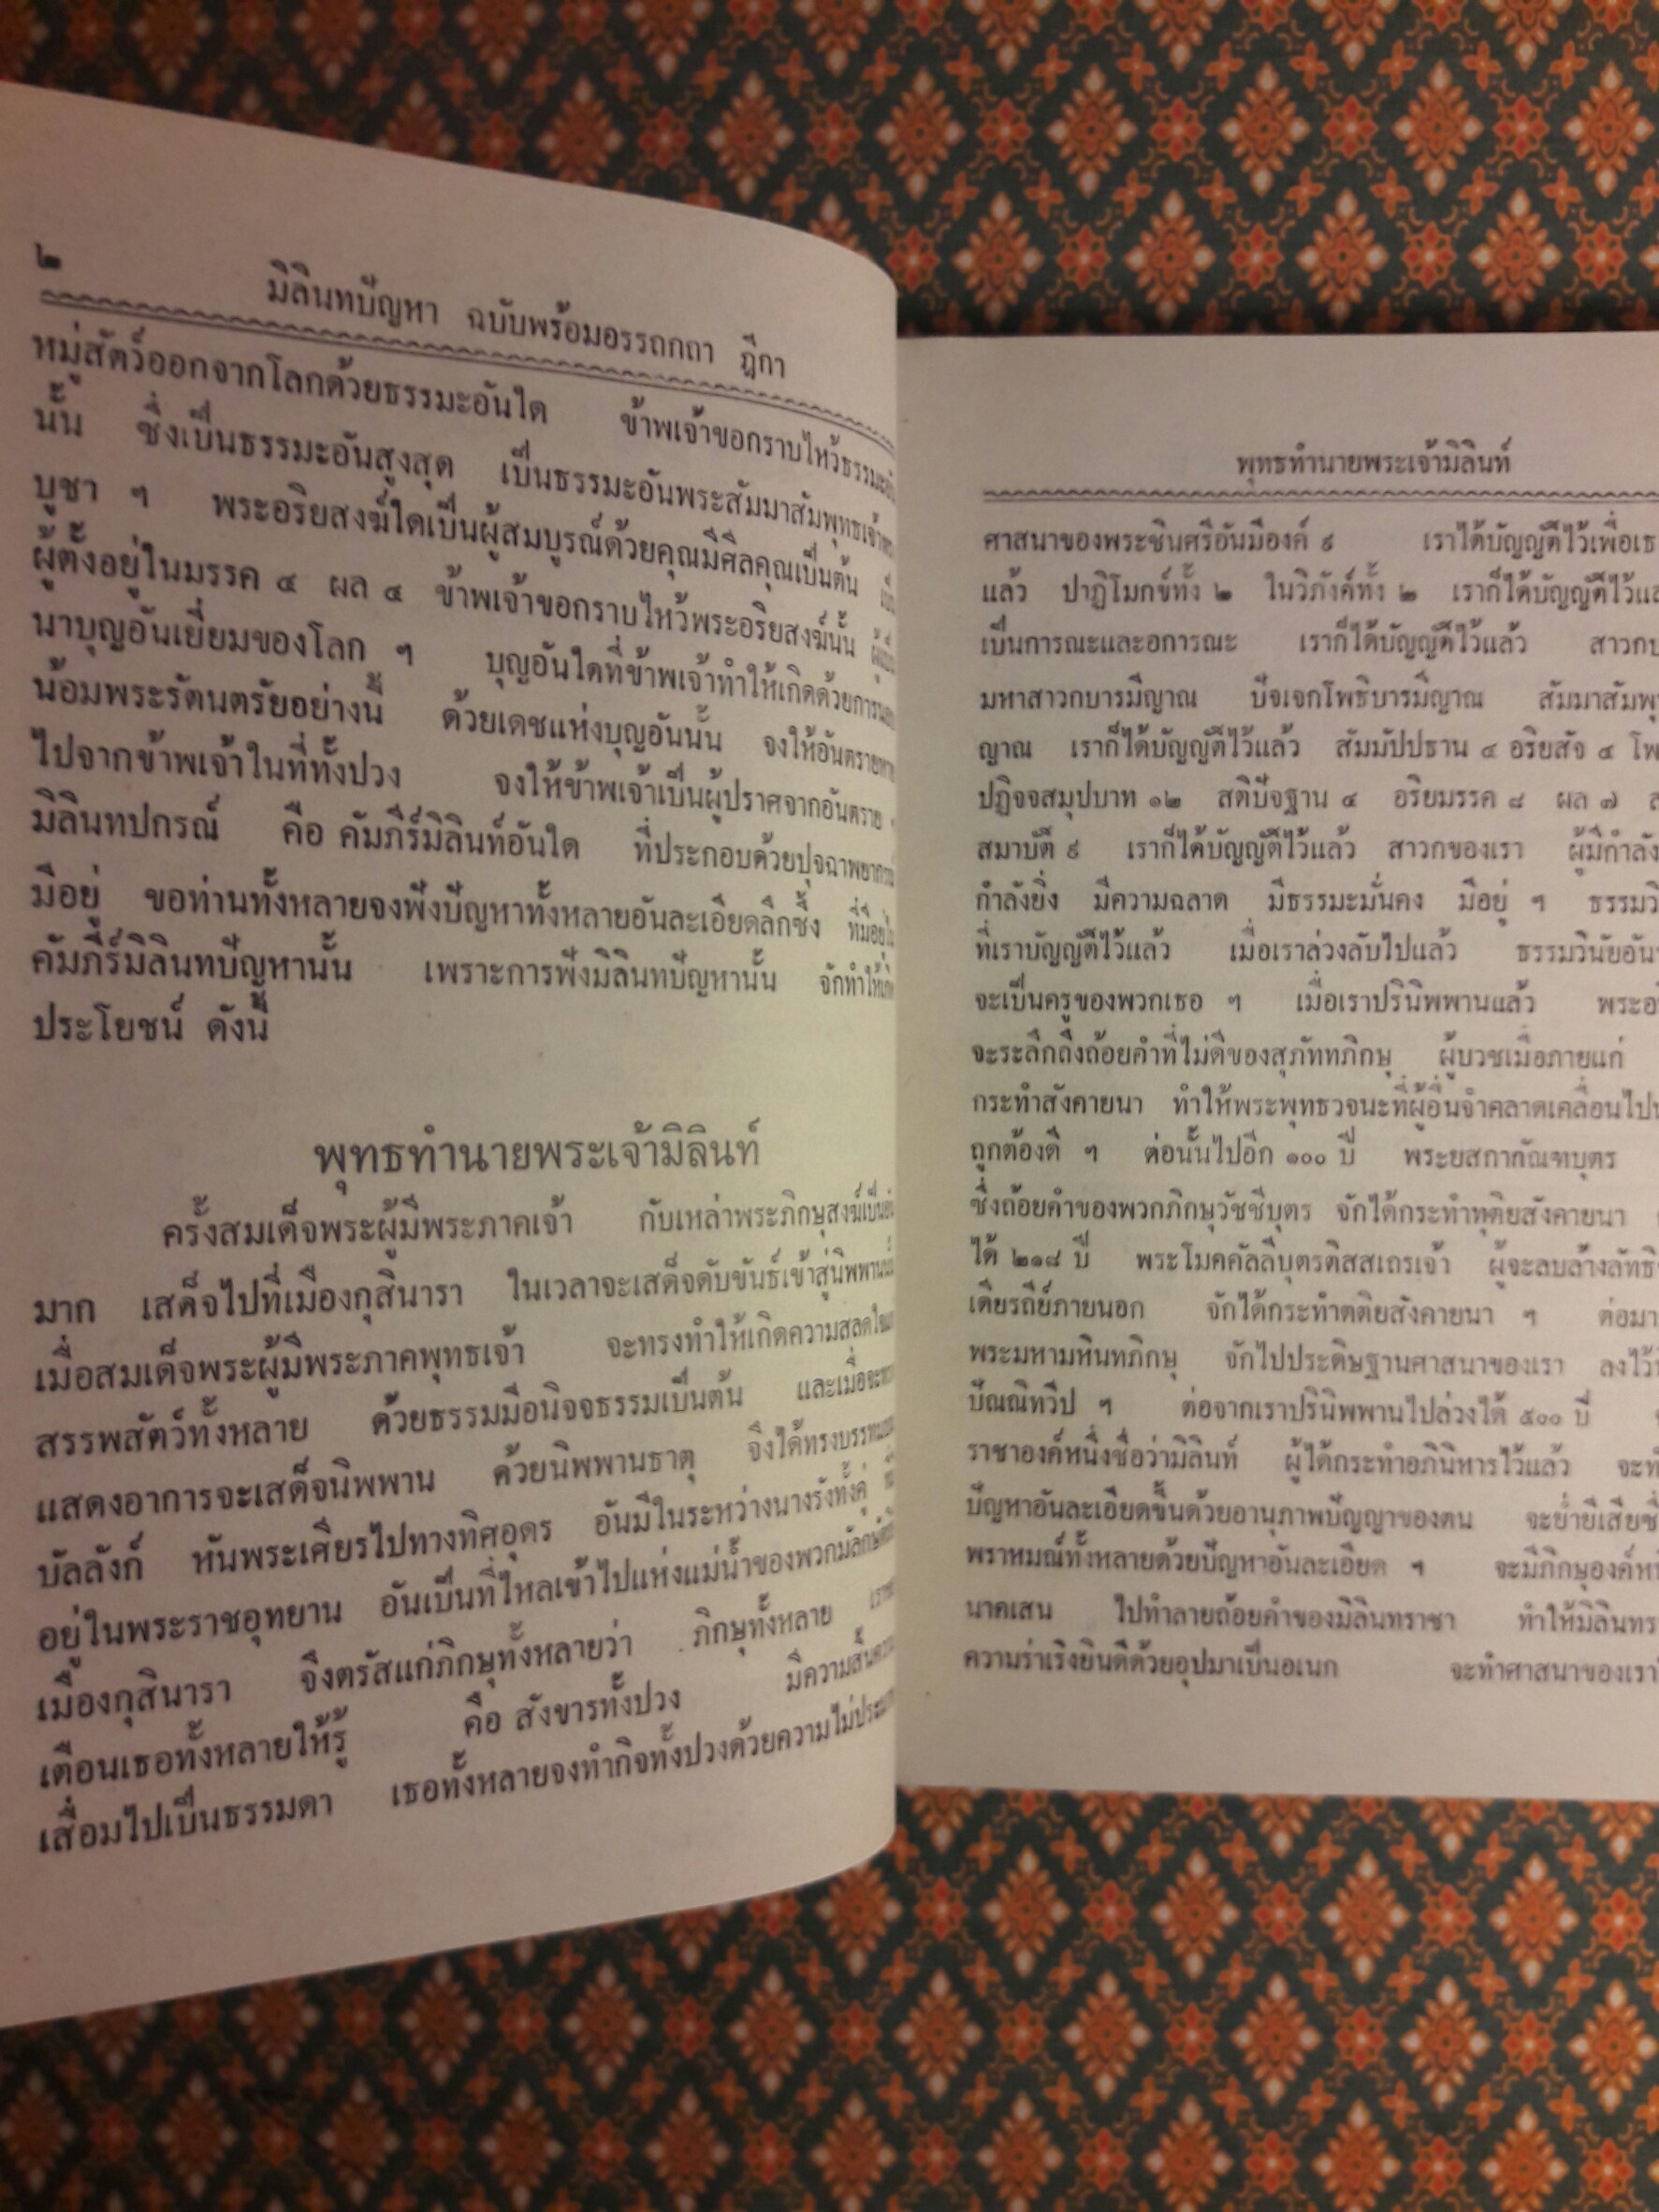 ๒
มิลินทปัญหา ฉบับพร้อมอรรถกถา ฎีกา
หมู่สัตว์ออกจากโลกด้วยธรรมะอันใด ข้าพเจ้าขอกราบไหว้ธรรมะ
นั้น ซึ่งเป็นธรรมะอันสูงสุด เป็นธรรมะอันพระสัมมาสัมพุทธเจ้า
บูชา ฯ พระอริยสงฆ์ใดเป็นผู้สมบูรณ์ด้วยคุณมีศีลคุณเป็นต้น
ผู้ตั้งอยู่ในมรรค ๔ ผล ๔ ข้าพเจ้าขอกราบไหว้พระอริยสงฆ์นั้น
นาบุญอันเยี่ยมของโลก ฯ บุญอันใดที่ข้าพเจ้าทำให้เกิดด้วยการ
น้อมพระรัตนตรัยอย่างนี้ ด้วยเดชแห่งบุญอันนั้น จงให้อันตราย
ไปจากข้าพเจ้าในที่ทั้งปวง จงให้ข้าพเจ้าเป็นผู้ปราศจากอันตราย
มิลินทปกรณ์ คือ คัมภีร์มิลินท์อันใด ที่ประกอบด้วยปุจฉาพยากรณ์
มีอยู่ ขอท่านทั้งหลายจงฟังปัญหาทั้งหลายอันละเอียดลึกซึ้ง ที่มีอยู่ใน
คัมภีร์มิลินทปัญหานั้น เพราะการฟังมิลินทปัญหานั้น จักทำให้เกิด
ประโยชน์ ดังนี้
พุทธทำนายพระเจ้ามิลินท์
ครั้งสมเด็จพระผู้มีพระภาคเจ้า กับเหล่าพระภิกษุสงฆ์เป็น
มาก เสด็จไปที่เมืองกุสินารา ในเวลาจะเสด็จดับขันธ์เข้าสู่นิพพาน
เมื่อสมเด็จพระผู้มีพระภาคพุทธเจ้า จะทรงทำให้เกิดความสลดใจ
สรรพสัตว์ทั้งหลาย ด้วยธรรมมีอนิจจธรรมเป็นต้น และเมื่อจะ
แสดงอาการจะเสด็จนิพพาน ด้วยนิพพานธาตุ จึงได้ทรงบรรทม
บัลลังก์ หันพระเศียรไปทางทิศอุดร อันมีในระหว่างนางรังทั้งคู่
อยู่ในพระราชอุทยาน อันเป็นที่ไหลเข้าไปแห่งแม่น้ำของพวกมัลกษัตริย์
เมืองกุสินารา จึงตรัสแก่ภิกษุทั้งหลายว่า ภิกษุทั้งหลาย
เตือนเธอทั้งหลายให้รู้ คือ สังขารทั้งปวง มีความสิ้นความ
เสื่อมไปเป็นธรรมดา เธอทั้งหลายจงทำกิจทั้งปวงด้วยความไม่ประมาท
พุทธทำนายพระเจ้ามิลินท์
ศาสนาของพระชินศรีอันมีองค์ ๙ เราได้บัญญัติไว้เพื่อเธอ
แล้ว ปาฏิโมกข์ทั้ง ๒ ในวิภังค์ทั้ง ๒ เราก็ได้บัญญัติไว้
เป็นการณะและอการณะ เราก็ได้บัญญัติไว้แล้ว สาวก
มหาสาวกบารมีญาณ ปัจเจกโพธิบารมีญาณ สัมมาสัม
ญาณ เราก็ได้บัญญัติไว้แล้ว สัมมัปปธาน ๔ อริยสัจ ๔
ปฏิจจสมุปบาท ๑๒ สติปัจฐาน ๔ อริยมรรค ๘ ผล ๗
สมาบัติ ๙ เราก็ได้บัญญัติไว้แล้ว สาวกของเรา ผู้มีกำลัง
กำลังยิ่ง มีความฉลาด มีธรรมะมั่นคง มีอยู่ ฯ ธรรม
ที่เราบัญญัติไว้แล้ว เมื่อเราล่วงลับไปแล้ว ธรรมวินัยอัน
จะเป็นครูของพวกเธอ ฯ เมื่อเราปรินิพพานแล้ว
จะระลึกถึงถ้อยคำที่ไม่ดีของสุภัททภิกษุ ผู้บวชเมื่อภายแก่
กระทำสังคายนา ทำให้พระพุทธวจนะที่ผู้อื่นจำคลาดเคลื่อนไป
ถูกต้องดี ฯ ต่อนั้นไปอีก ๑๐๐ ปี พระยสกากัณฑบุตร
ซึ่งถ้อยคำของพวกภิกษุวัชชีบุตร จักได้กระทำทุติยสังคายนา
ได้ ๒๑๘ ปี พระโมคคัลลีบุตรติสสเถรเจ้า ผู้จะลบล้างลัทธิ
เดียรถีย์ภายนอก จักได้กระทำตติยสังคายนา ฯ ต่อมา
พระมหามหินทภิกษุ จักไปประดิษฐานศาสนาของเรา ลงไว้
ปัณณิทวีป ฯ ต่อจากเราปรินิพพานไปล่วงได้ ๕๐๐ ปี
ราชาองค์หนึ่งชื่อว่ามิลินท์ ผู้ได้กระทำอภินิหารไว้แล้ว
ปัญหาอันละเอียดขึ้นด้วยอานุภาพปัญญาของตน จะย่ำยีเสีย
พราหมณ์ทั้งหลายด้วยปัญหาอันละเอียด ฯ จะมีภิกษุองค์
นาคเสน ไปทำลายถ้อยคำของมิลินทราชา ทำให้
ความร่าเริงยินดีด้วยอุปมาเป็นอเนก จะทำศาสนาของเรา